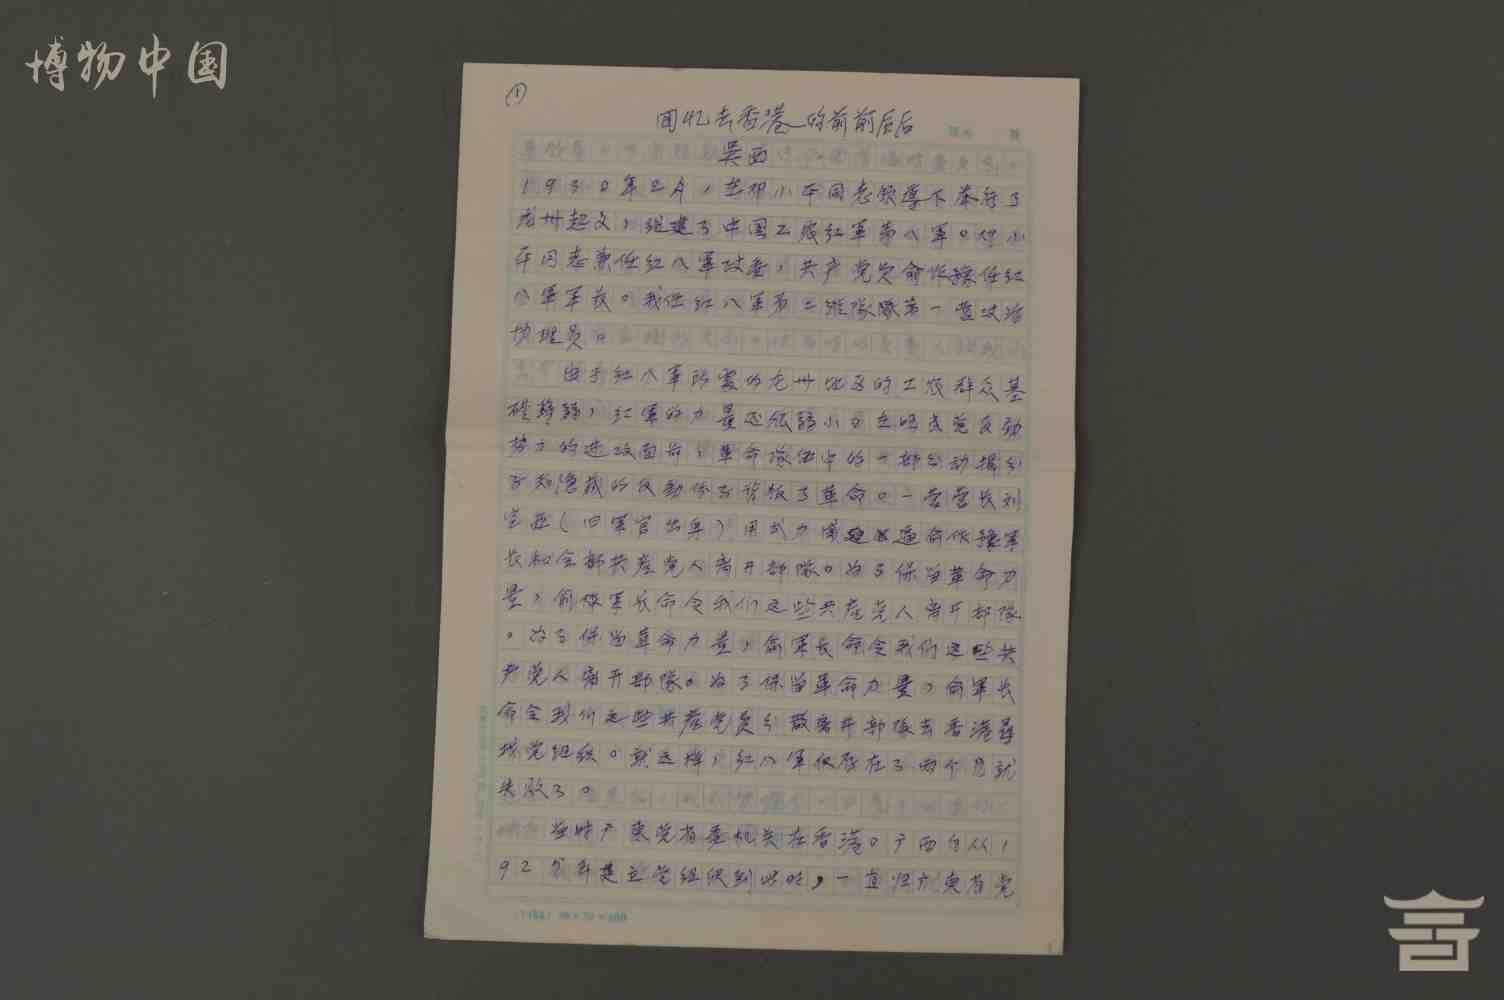 博物中国
①
回忆去香港的前前后后
吴西
1930年二月，在邓小平同志领导下举行了
龙州起义，组建了中国工农红军第八军。邓小
平同志兼任红八军政委，共产党员俞作豫任红
八军军长。我任红八军第二纵队第一营政治
协理员。
由于红八军所处的龙州地区的工农群众基
础薄弱，红军的力量还很弱小，在国民党反动
势力的进攻面前，革命队伍中的一部分动摇分
子和隐藏的反动份子背叛了革命。一营营长刘
定西（旧军官出身）用武力逼俞作豫军
长和全部共产党人离开部队。为了保留革命力
量，俞作军长命令我们这些共产党人离开部队
。为了保留革命力量，俞军长命令我们这些共
产党人离开部队。为了保留革命力量，俞军长
命令我们这些共产党员分散离开部队去香港寻
找党组织。就这样，红八军仅存在了两个月就
失败了。
当时广东党省委机关在香港。广西自从1
92 年建立党组织到此时，一直归广东省党